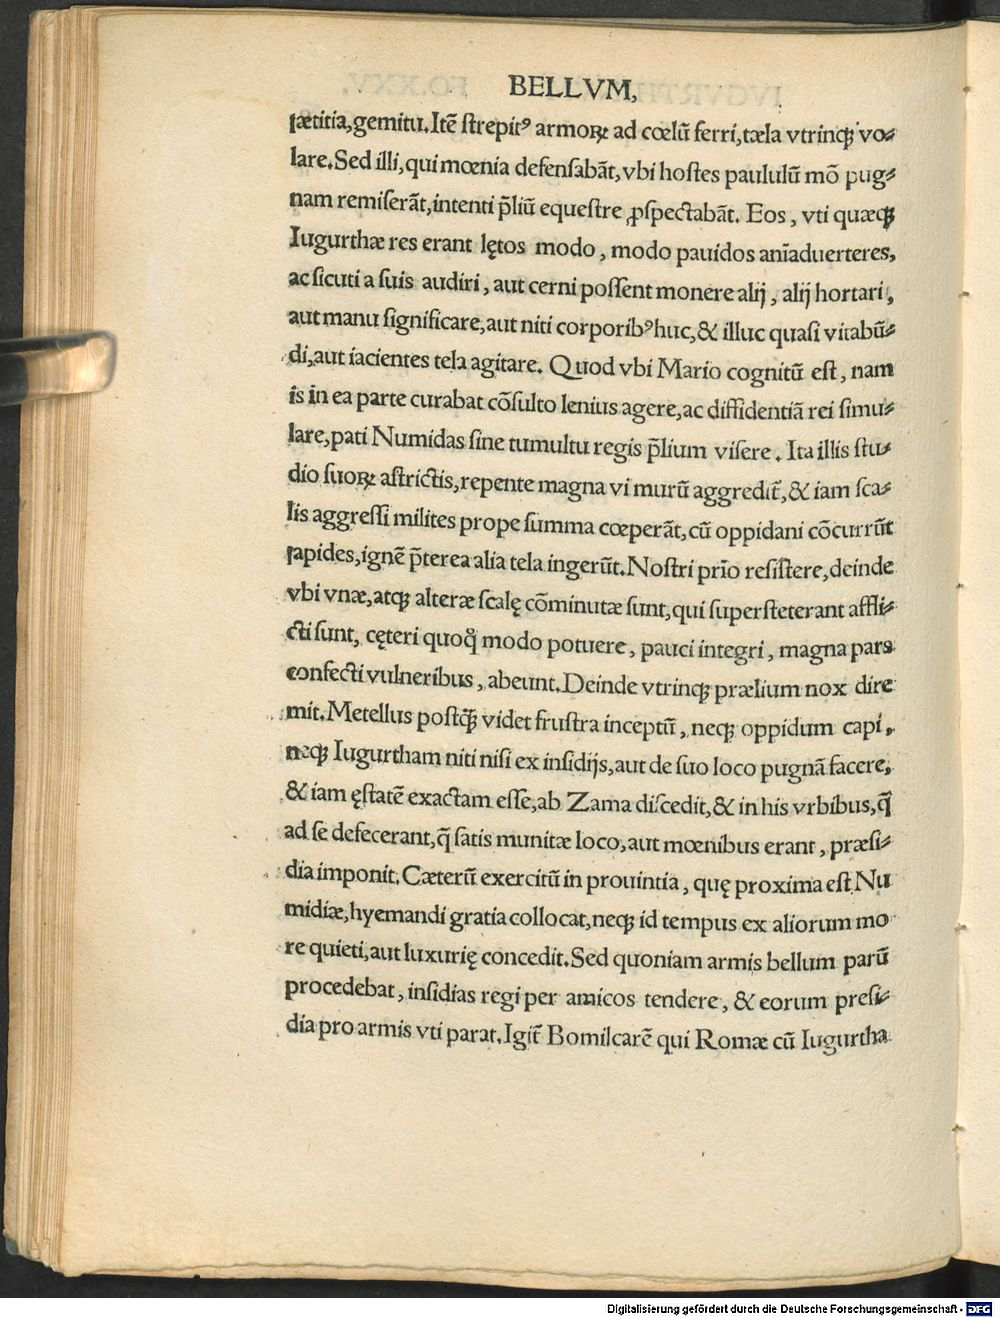 BELLVM,
lætitia,gemitu.Itẽ ſtrepitꝰ armoꝝ ad cœlũ ferri,tæla vtrinqꝫ vo⸗
lare.Sed illi,qui mœnia defenſabãt,vbi hoſtes paululũ mõ pug⸗
nam remiſerãt,intenti p̃liũ equeſtre ꝓſpectabãt. Eos, vti quæqꝫ
Iugurthæ res erant lętos modo, modo pauidos anĩaduerteres,
ac ſicuti a ſuis audiri, aut cerni poſſent monere alij, alij hortari,
aut manu ſignificare,aut niti corporibꝰ huc,& illuc quaſi vitabũ⸗
di,aut iacientes tela agitare. Quod vbi Mario cognitũ eſt, nam
is in ea parte curabat cõſulto lenius agere,ac diffidentiã rei ſimu⸗
lare,pati Numidas ſine tumultu regis p̃lium viſere. Ita illis ſtu⸗
dio ſuoꝝ aſtrictis,repente magna vi murũ aggredit̃,& iam ſca⸗
lis aggreſſi milites prope ſumma cœperãt,cũ oppidani cõcurrũt
lapides,ignẽ p̃terea alia tela ingerũt.Noſtri prĩo reſiſtere,deinde
vbi vnæ,atqꝫ alteræ ſcalę cõminutæ ſunt,qui ſuperſteterant affli⸗
cti ſunt, cęteri quoq̃ modo potuere, pauci integri, magna pars
confecti vulneribus, abeunt.Deinde vtrinqꝫ prælium nox dire
mit.Metellus poſtq̃ꝫ videt fruſtra inceptũ, neqꝫ oppidum capi,
neqꝫ Iugurtham niti niſi ex inſidijs,aut de ſuo loco pugnã facere,
& iam ęſtatẽ exactam eſſe,ab Zama diſcedit,& in his vrbibus,q̃
ad ſe defecerant,q̃ ſatis munitæ loco,aut mœnibus erant, præſi⸗
dia imponit.Cæterũ exercitũ in prouintia, quę proxima eſt Nu
midiæ,hyemandi gratia collocat,neqꝫ id tempus ex aliorum mo
re quieti,aut luxurię concedit.Sed quoniam armis bellum parũ
procedebat, inſidias regi per amicos tendere, & eorum preſi⸗
dia pro armis vti parat.Igit̃ Bomilcarẽ qui Romæ cũ Iugurtha
Digitalisierung gefördert durch die Deutsche Forschungsgemeinschaft - DFG